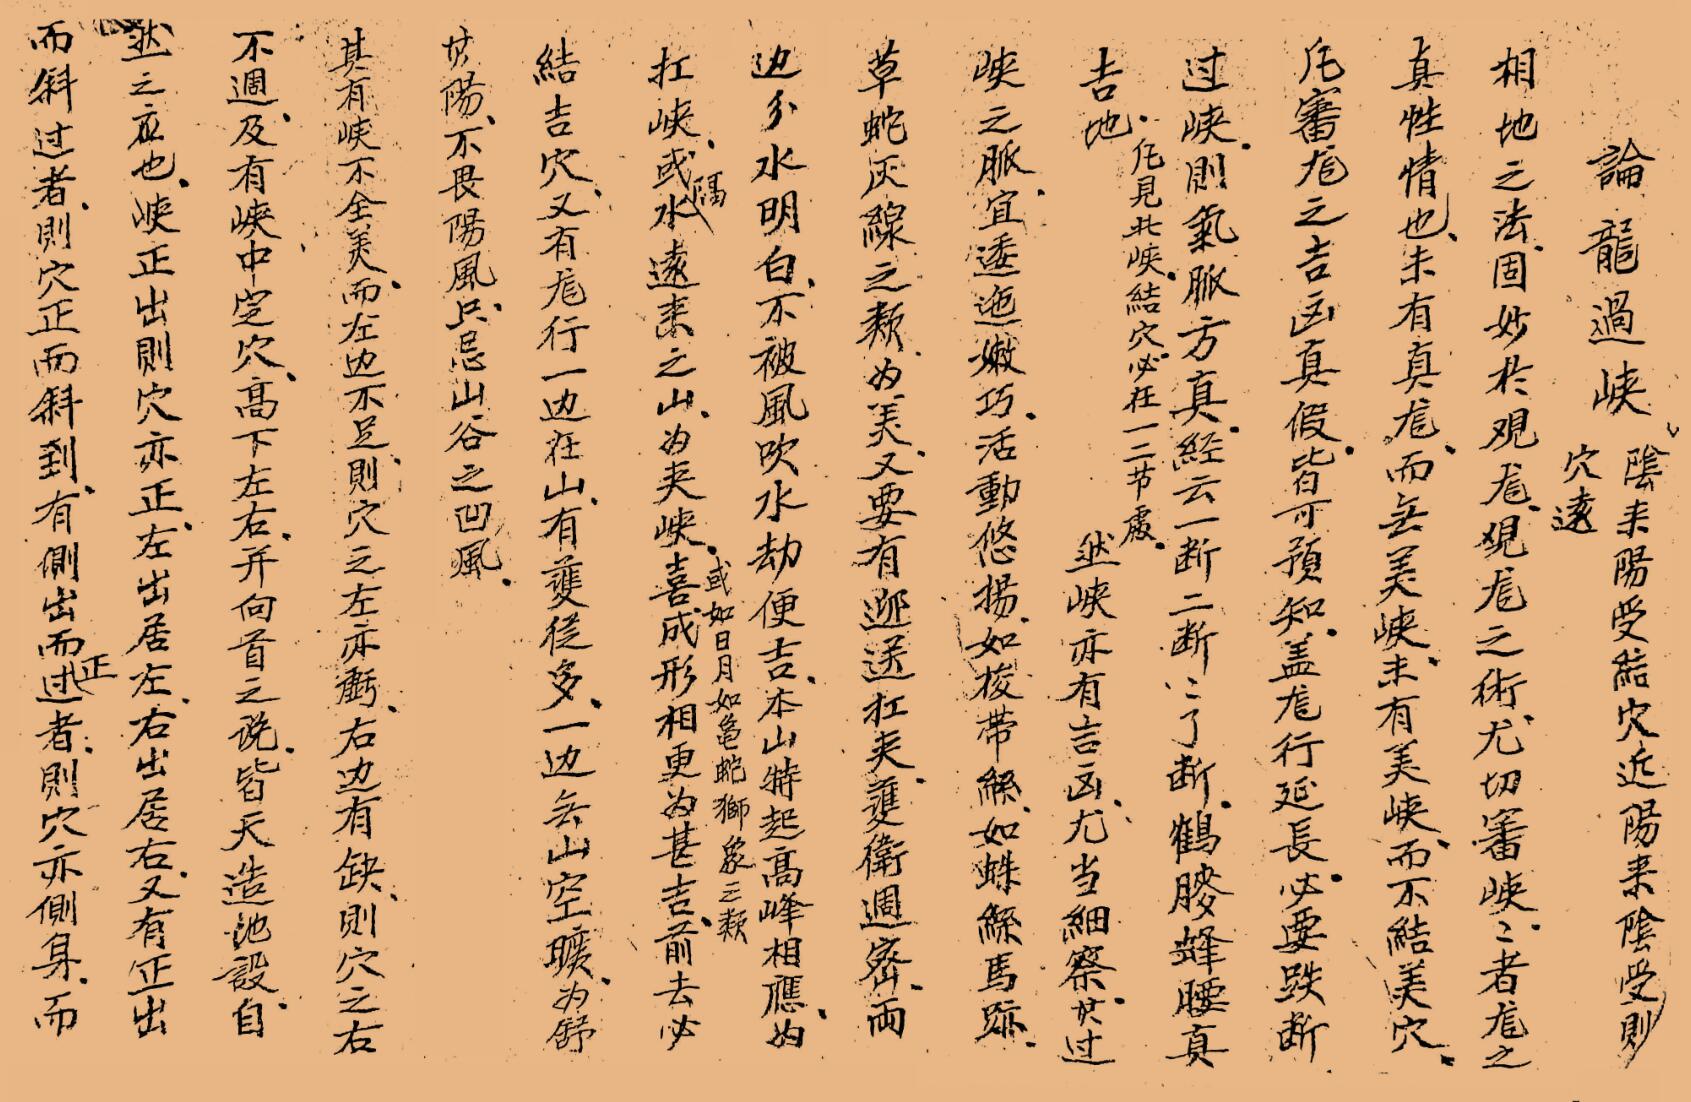 論龍過峽 陰来陽受結穴近陽来陰受則穴遠
相地之法固妙於观龙观龙之術尤切審峡〻者龙之
真性情也未有真龙而无美峡未有美峡而不結美穴
凡審龙之吉凶真假皆可預知盖龙行延長必要跌断
过峡則氣脈方真経云一断二断〻了断鶴膝蜂腰真
吉地 凡見此峡結穴必在一二节處 然峡亦有吉凶尤当細察其过
峡之脈宜逶迤嫩巧活動悠揚如梭带絲如蛛絲馬跡
草蛇灰線之類为美又要有迎送扛夹護衛週密両
边分水明白不被風吹水劫便吉本山特起高峰相應为
扛峡或隔水遠来之山为夹峡喜成形相更为甚吉 或如日月如龟蛇獅象之類 前去必
結吉穴又有龙行一边在山有護従多一边无山空曠为舒
其陽不畏陽風只忌山谷之凹風
其有峡不全美而左边不足則穴之左亦虧右边有缺則穴之右
不週及有峡中定穴高下左右并向首之说皆天造地設自
然之应也峡正出則穴亦正左出居左右出居右又有正出
而斜过者則穴正而斜到有側出而正过者則穴亦側身而